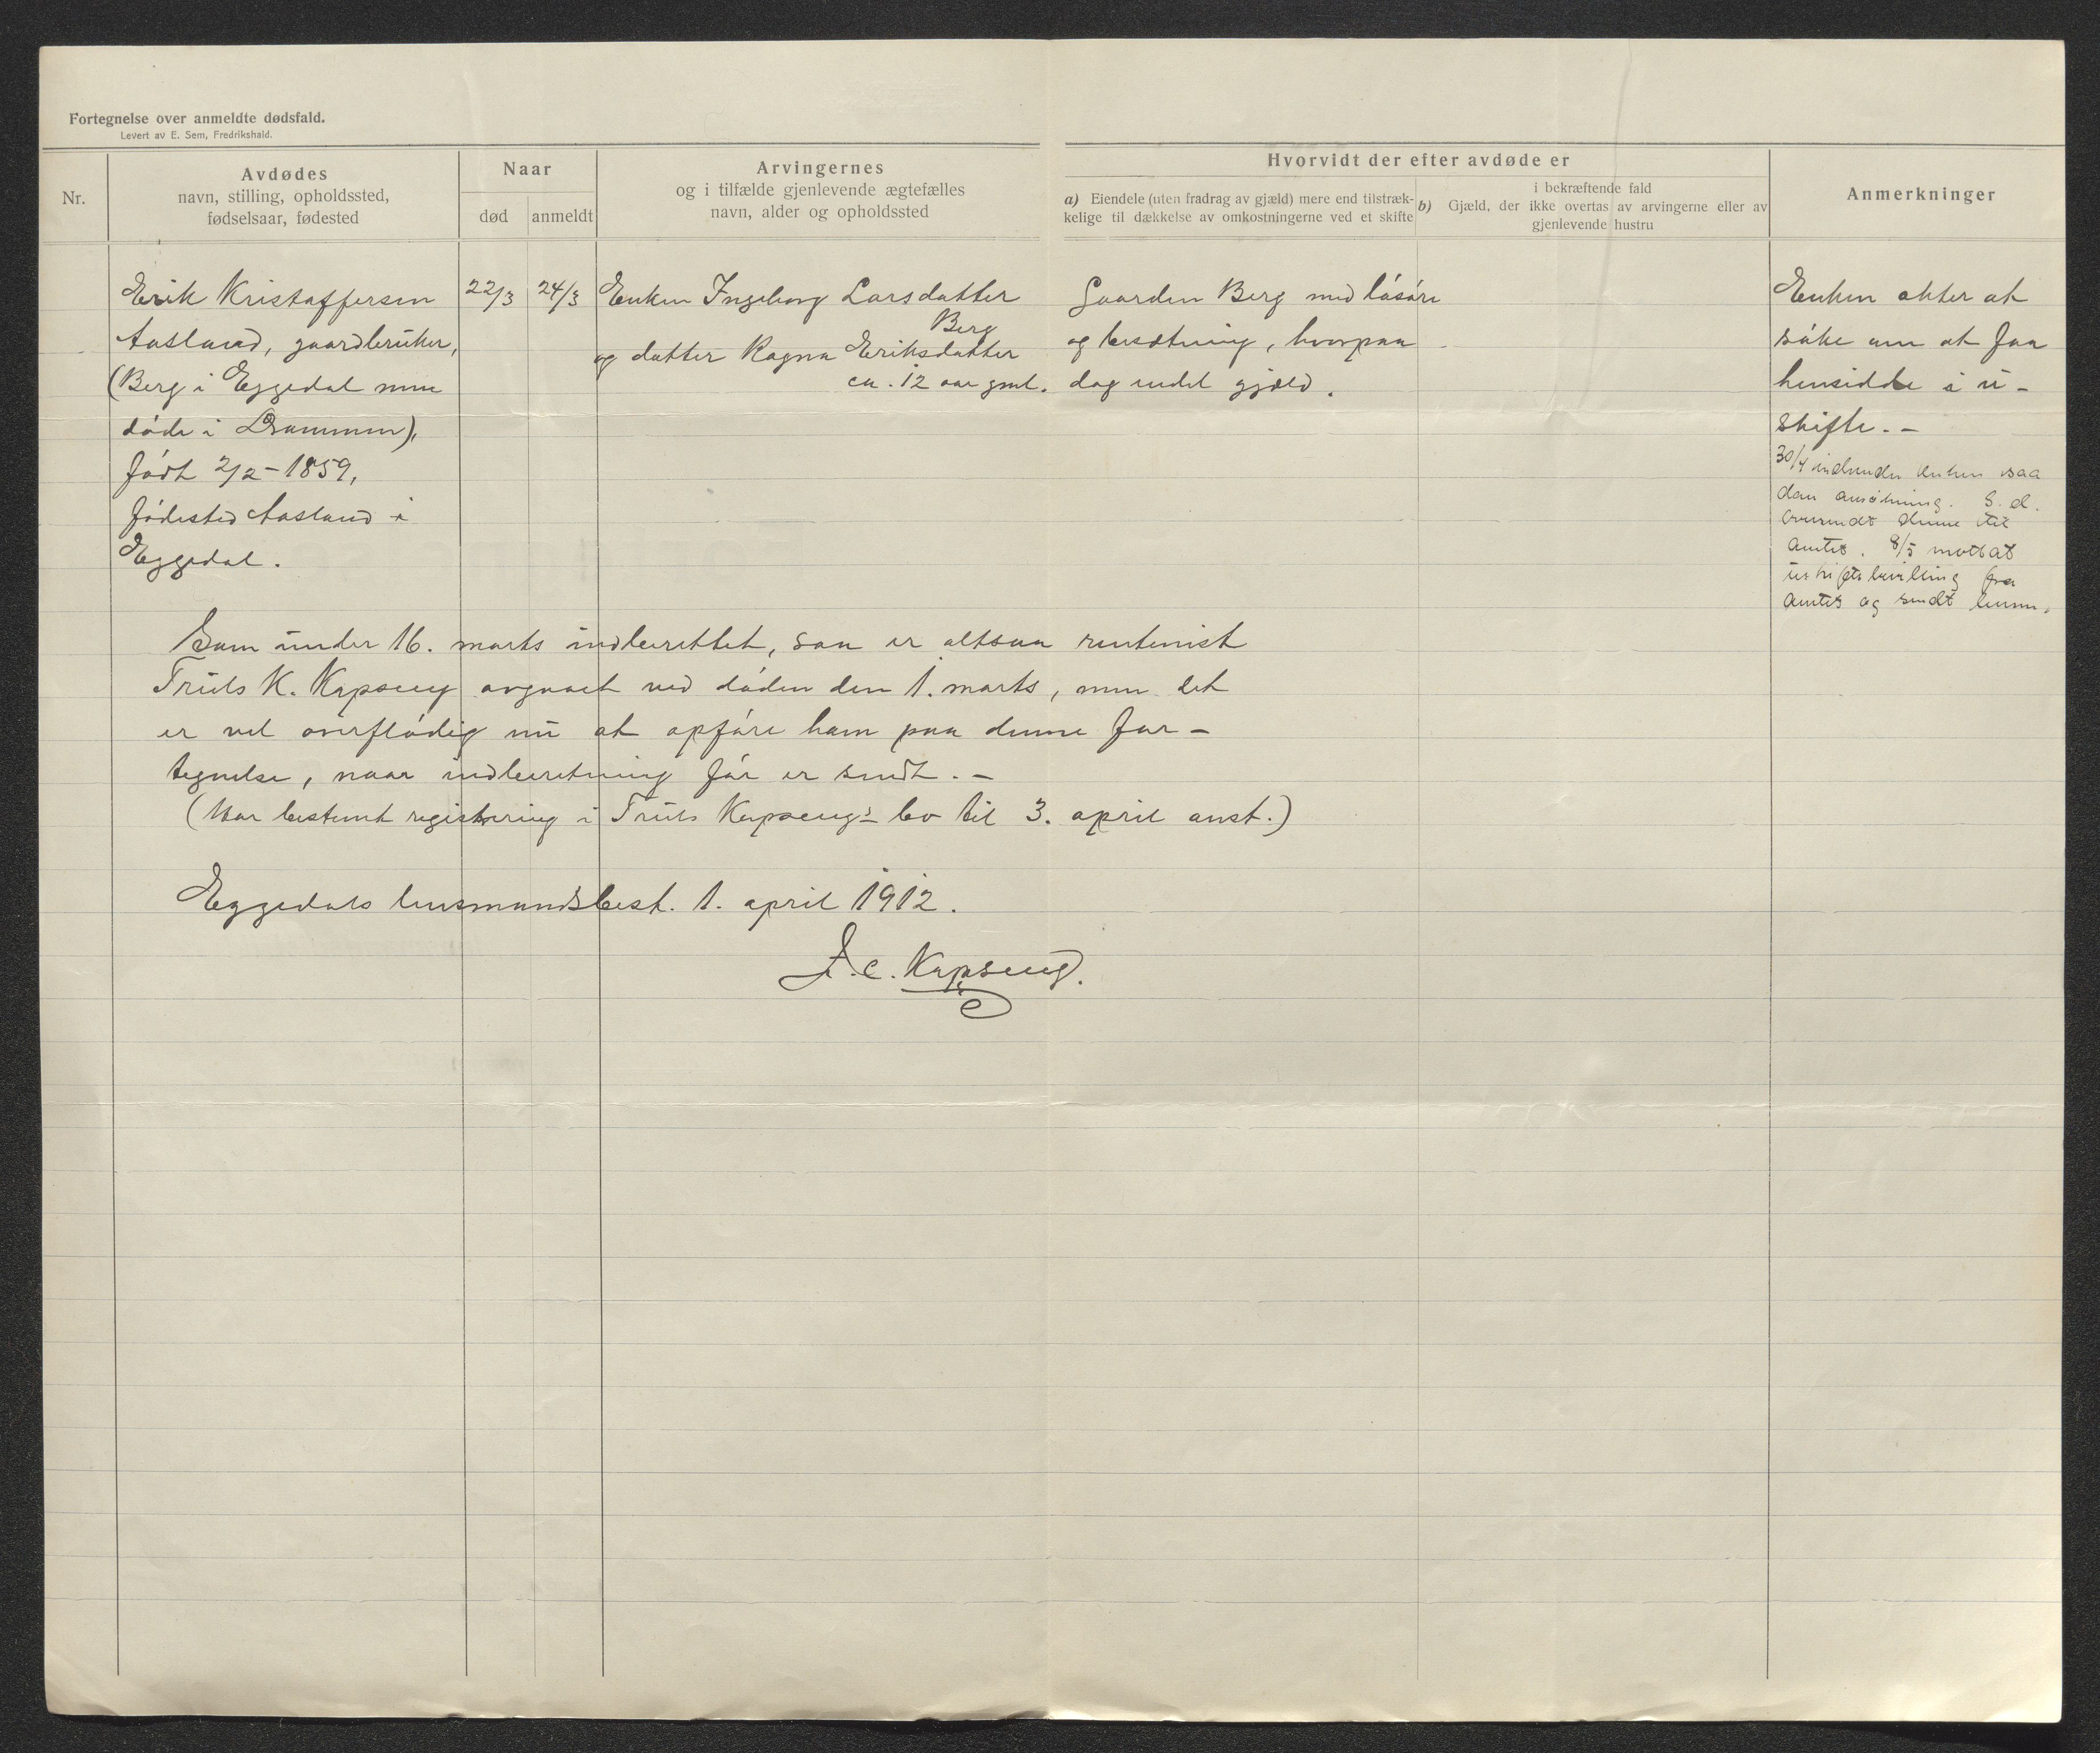 Fortegnelse over anmeldte dødsfald.
Levert av E. Sem, Fredrikshald.
Nr.
Avdødes
navn, stilling, opholdssted,
fødselsaar, fødested
Naar
død
anmeldt
Arvingernes
og i tilfælde gjenlevende ægtefælles
navn, alder og opholdssted
Hvorvidt der efter avdøde er
a) Eiendele (uten fradrag av gjæld) mere end tilstræk-
kelige til dækkelse av omkostningerne ved et skifte
i bekræftende fald
b) Gjæld, der ikke overtas av arvingerne eller av
gjenlevende hustru
Anmerkninger
Erik Kristoffersen
Aasland, gaardbruker,
(Berg i Eggedal men
døde i Drammen),
født 2/2-1859,
fødested Aasland i
Eggedal.
22/3
24/3
Enken Ingeborg Larsdatter
Berg
og datter Ragna Eriksdatter
ca. 12 aar gml.
Gaarden Berg med løsøre
og besætning, hvorpaa
dog endel gjæld.
Enken akter at
søke om at faa
hensidde i u-
skifte. -
30/4 indsender enken saa
dan ansøkning. S. d.
oversendt denne til
amtet. 8/5 mottat
uskiftebevilling fra
amtet og sendt henne.
Som under 16. marts indberettet, saa er altsaa rentenist
Truls K. Kopseng avgaaet ved døden den 1. marts, men det
er vel overflødig nu at opføre ham paa denne for-
tegnelse, naar indberetning før er sendt. -
(Har bestemt registrering i Truls Kopseng's bo til 3. april anst.)
Eggedals lensmandsbest. 1. april 1912.
Kopseng.